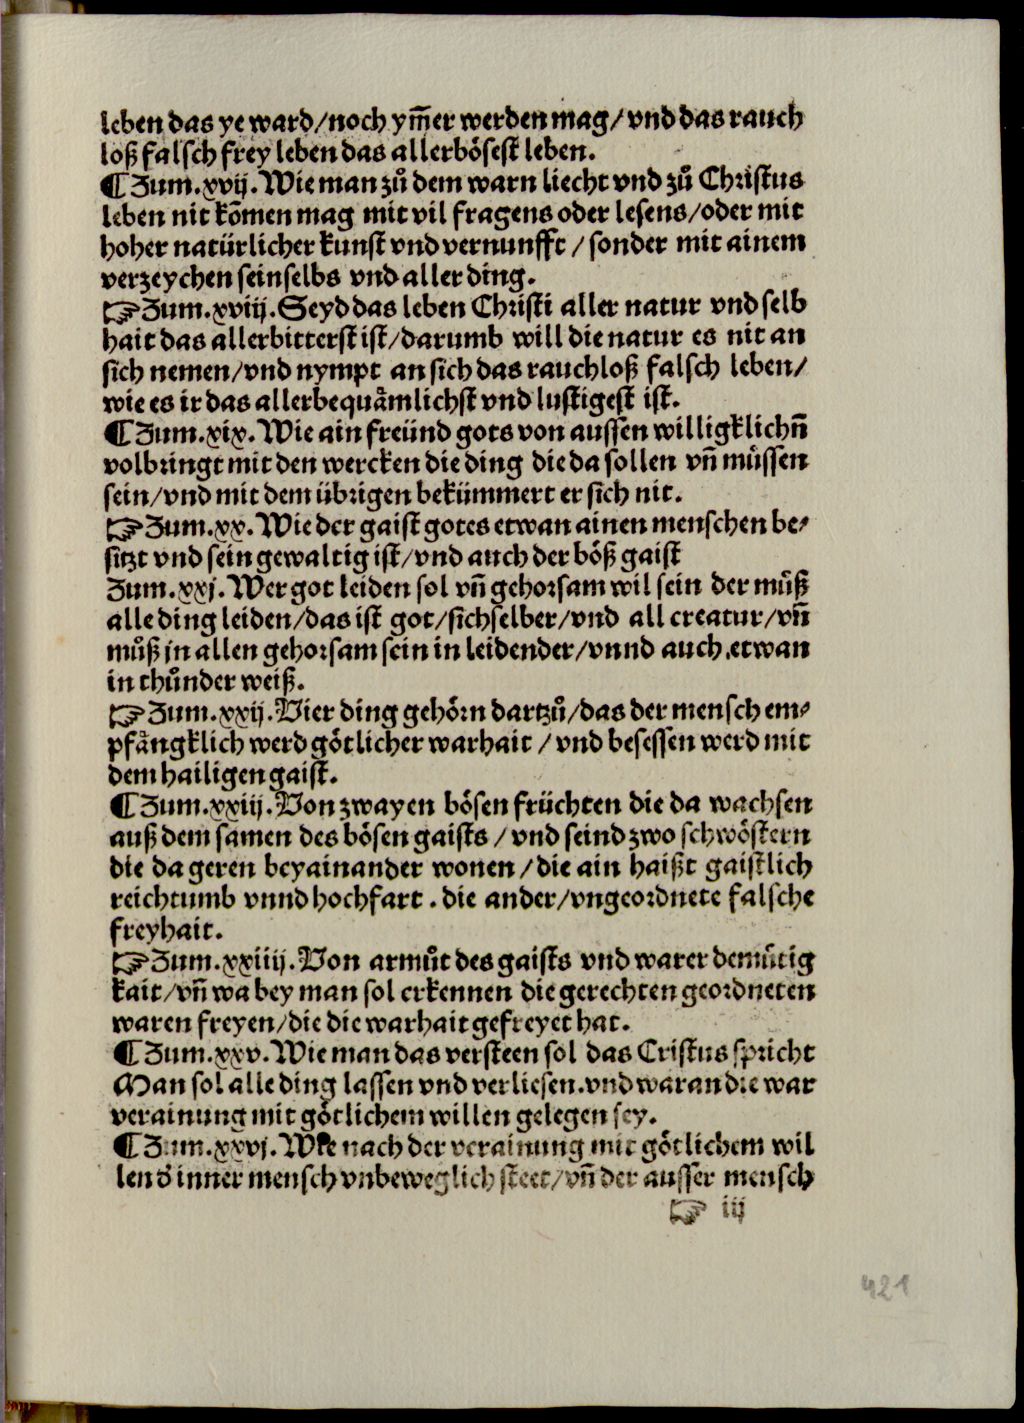 leben das ye ward/noch ym̃er werden mag/vnd das rauch
loß falsch frey leben das allerbösest leben.
¶ Zum.xvij.Wie man zů dem warn liecht vnd zů Christus
leben nit kom̃en mag mit vil fragens oder lesens/oder mit
hoher natürlicher kunst vnd vernunfft / sonder mit ainem
verzeychen seinselbs vnd aller ding.
☞ Zum.xviij.Seyd das leben Christi aller natur vnd selb
hait das allerbitterst ist/darumb will die natur es nit an
sich nemen/vnd nympt an sich das rauchloß falsch leben/
wie es ir das allerbequämlichst vnd lustigest ist.
¶ Zum.xix.Wie ain freünd gots von aussen willigklichñ
volbringt mit den wercken die ding die da sollen vñ müssen
sein/vnd mit dem übrigen bekümmert er sich nit.
☞ Zum.xx.Wie der gaist gotes etwan ainen menschen be⸗
sitzt vnd sein gewaltig ist/vnd auch der böß gaist
Zum.xxj.Wer got leiden sol vñ gehorsam wil sein der můß
alle ding leiden/das ist got/sichselber/vnd all creatur/vñ
můß jn allen gehorsam sein in leidender/vnnd auch.etwan
in thůnder weiß.
☞ Zum.xxij.Vier ding gehörn dartzů/das der mensch em⸗
pfängklich werd götlicher warhait / vnd besessen werd mit
dem hailigen gaist.
¶ Zum.xxiij.Von zwayen bösen früchten die da wachsen
auß dem samen des bösen gaists / vnd seind zwo schwöstern
die da geren beyainander wonen / die ain haißt gaistlich
reichtumb vnnd hochfart . die ander/vngeordnete falsche
freyhait.
☞ Zum.xxiiij.Von armůt des gaists vnd warer demütig
kait/vñ wa bey man sol erkennen die gerechten geordneten
waren freyen/die die warhait gefreyet hat.
¶ Zum.xxv.Wie man das versteen sol das Cristus spricht
Man sol alle ding lassen vnd verliesen.vnd waran die war
verainung mit götlichem willen gelegen sey.
¶ Zum.xxvj.Wie nach der verainung mit götlichem wil
len d̓ inner mensch vnbeweglich steet/vñ der ausser mensch
☞ iij
421